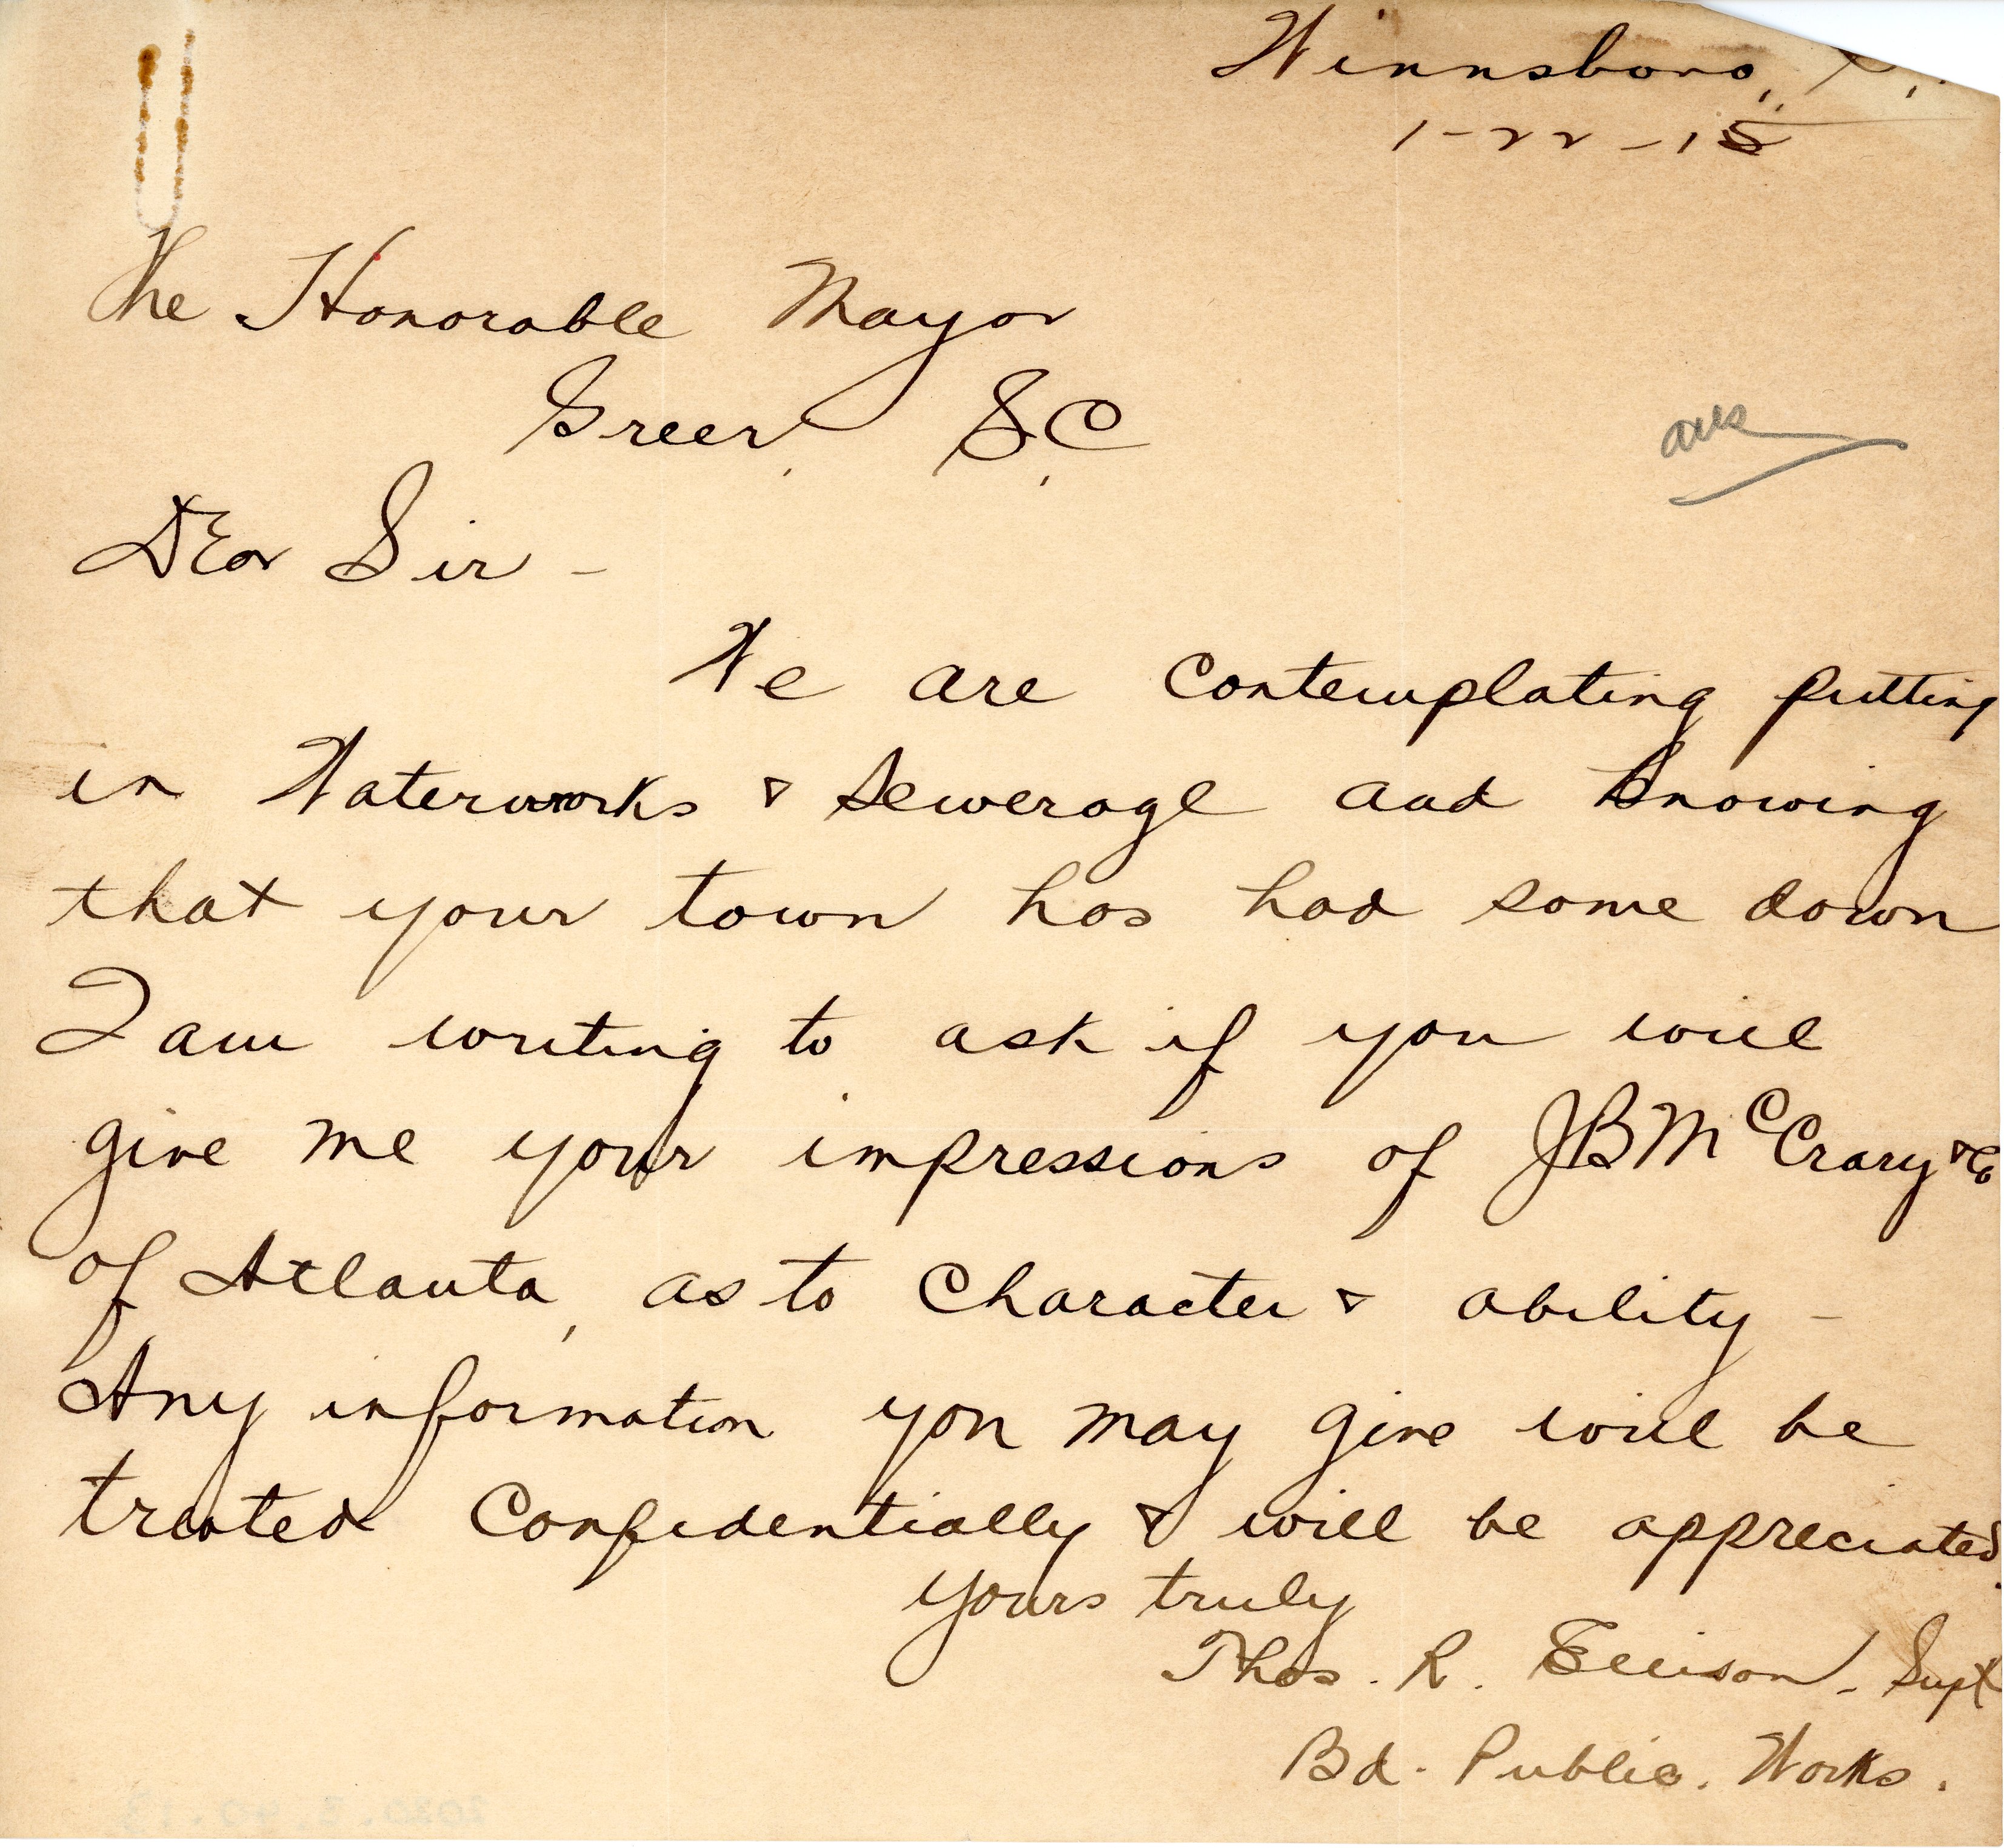 Winnsboro,
1-22-15
The Honorable Mayor
Greer, S.C.
ans
Dear Sir -
We are contemplating putting
in Waterworks & Sewerage and knowing
that your town has had some down
I am writing to ask if you will
give me your impressions of JB McCrary & Co
of Atlanta, as to Character & ability -
Any information you may give will be
treated Confidentially & will be appreciated.
Yours truly
Thos. R. Ellison, Supt
Bd. Public. Works.